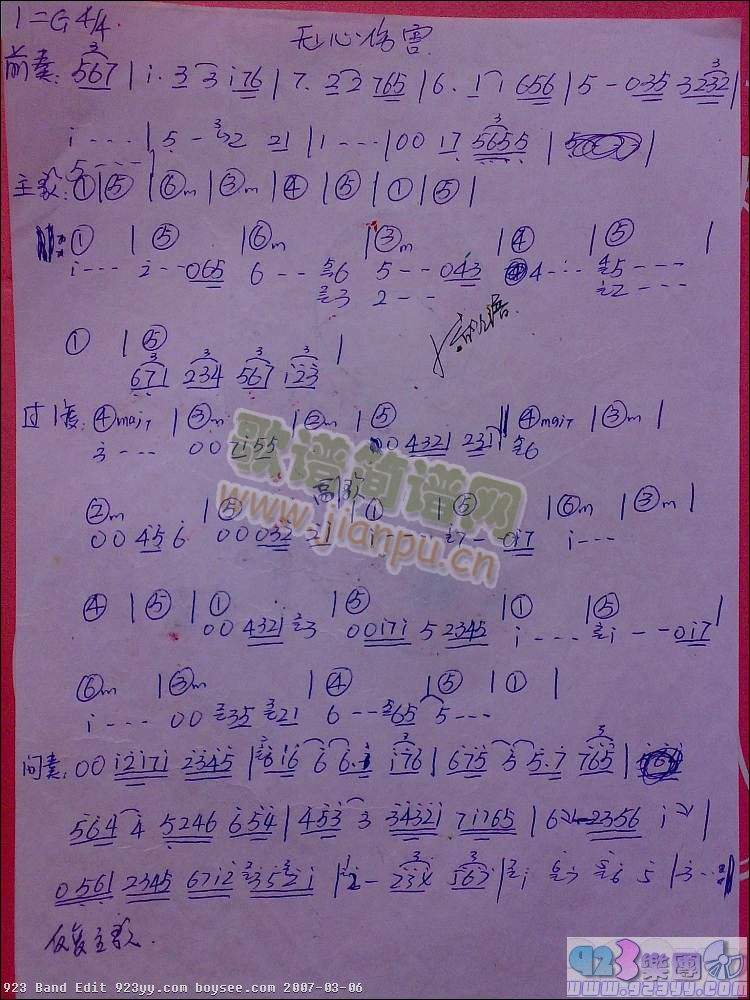 1=G 4/4
无心伤害
前奏: 567 | i. 3 3 i76 | 7. 2 2 765 | 6. 1 1 656 | 5 - 035 3232 |
i - - - - | 5 - 2 21 | 1 - - - | 00 17 5655 |
主歌: ① | ⑤ | ⑥m | ③m | ④ | ⑤ | ① | ⑤ |
① | ⑤ | ⑥m | ③m | ④ | ⑤ |
i - - - i - - 065 6 - - - 6 5 - - 043 4 - - - 5 - - -
3 2 - - i2 - - -
① | ⑤ |
671 234 567 i23
过度: ④maj7 | ③m | ②m | ⑤ || ④maj7 | ③m |
3 - - - 00 7i55 00 4321 231 6
②m | ⑤ 副歌 | ① | ⑤ | ⑥m | ③m |
00 45 6 00 032 21 i - - - i7 - - 0i7 i - - -
④ | ⑤ | ① | ⑤ | ① | ⑤ |
00 4321 3 00i7i 5 2345 i - - - i - - 0i7
⑥m | ③m | ④ | ⑤ | ① |
i - - - 00 35 21 6 - - 65 5 - - -
间奏: 00 i2i7i 2345 | 6i6 6 6. i76 | 675 5 5.7 765 |
564 4 5246 654 | 453 3 34321 7i765 | 6 2356 i |
0561 2345 67i2 352i | 2 - 234 567 | i 7 6 5 | 3 - - :||
反复主歌.
歌谱简谱网
www.jianpu.cn
923 Band Edit 923yy.com boysee.com 2007-03-06
923樂團
www.923yy.com